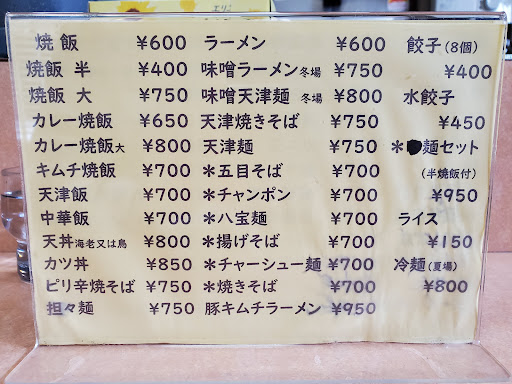 焼飯 ¥600
焼飯 半 ¥400
焼飯 大 ¥750
カレー焼飯 ¥650
カレー焼飯大 ¥800
キムチ焼飯 ¥700
天津飯 ¥700
中華飯 ¥700
天丼 海老又は鳥 ¥800
カツ丼 ¥850
ピリ辛焼そば ¥750
担々麺 ¥750
ラーメン ¥600
味噌ラーメン冬場 ¥750
味噌天津麺 冬場 ¥800
天津焼きそば ¥750
天津麺 ¥750
*五目そば ¥700
*チャンポン ¥700
*八宝麺 ¥700
*揚げそば ¥700
*チャーシュー麺 ¥700
*焼きそば ¥700
豚キムチラーメン ¥950
餃子(8個)
¥400
水餃子
¥450
*麺セット
(半焼飯付)
¥950
ライス
¥150
冷麺(夏場)
¥800